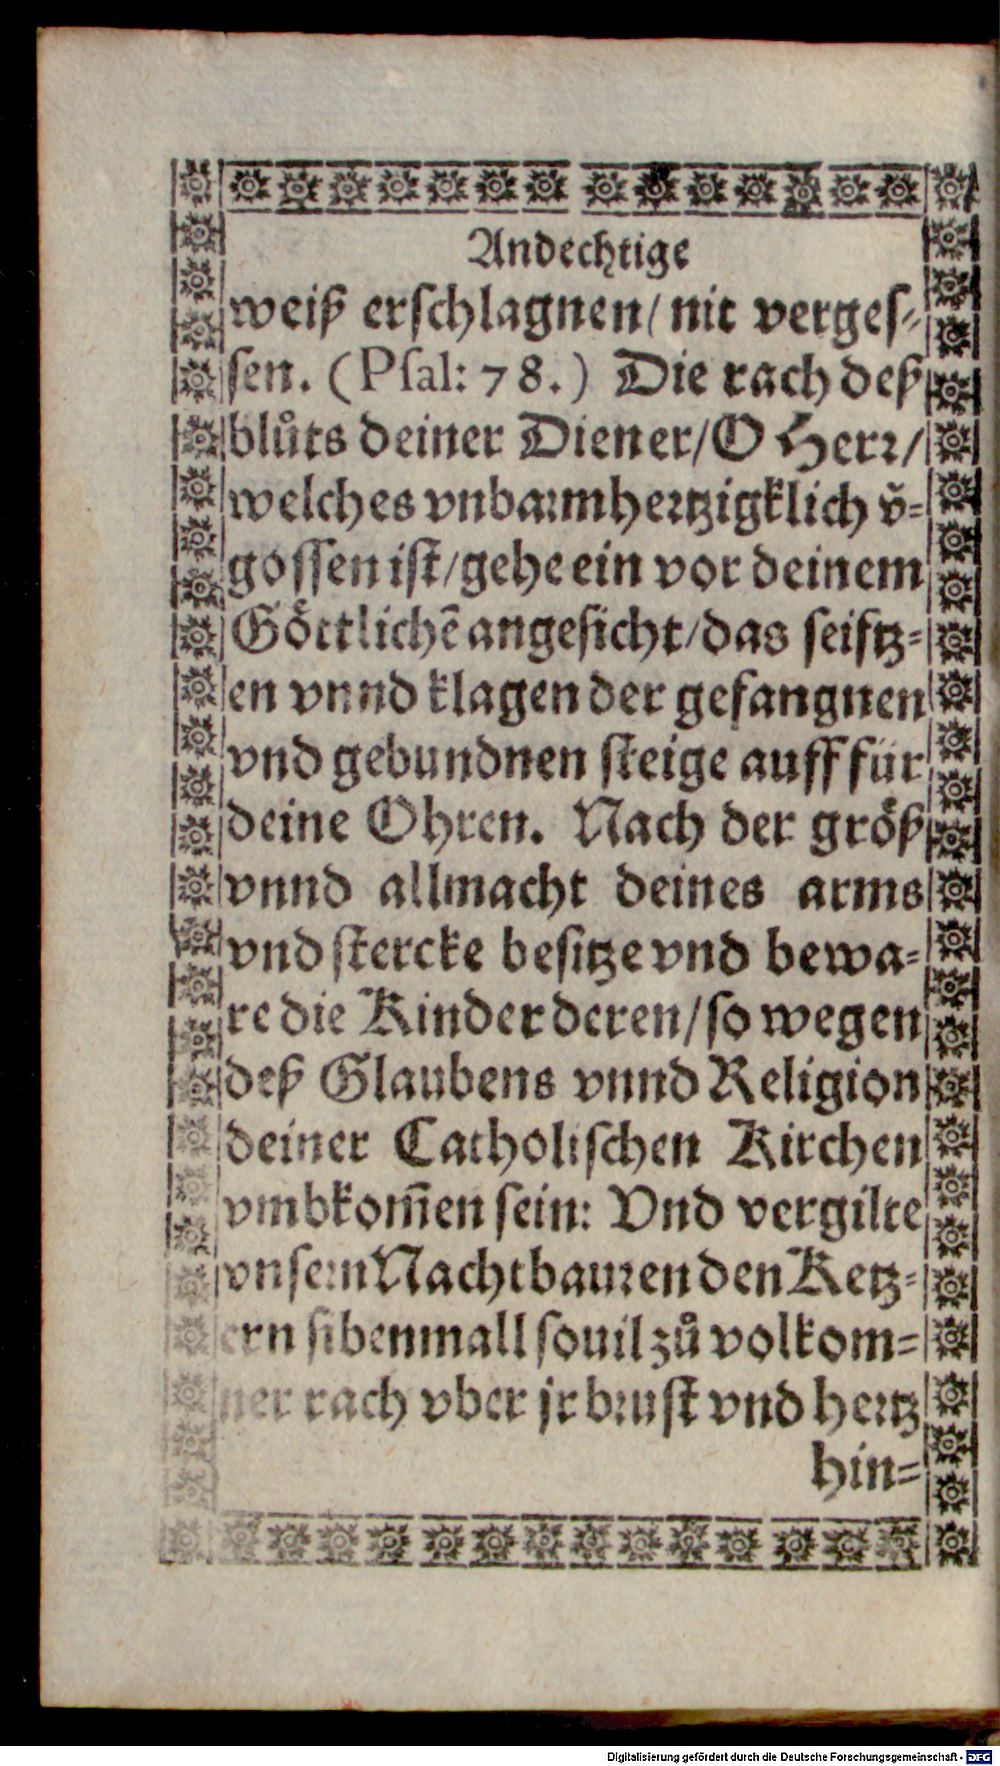 Andechtige
weiß erschlagnen/ nit verges⸗
sen. (Psal: 78.) Die rach deß
blůts deiner Diener/ O Herr/
welches vnbarmhertzigklich v̄⸗
gossen ist/ gehe ein vor deinem
Göttlichē angesicht/ das seiftz⸗
en vnnd klagen der gefangnen
vnd gebundnen steige auff für
deine Ohren. Nach der größ
vnnd allmacht deines arms
vnd stercke besitze vnd bewa⸗
re die Kinder deren/ so wegen
deß Glaubens vnnd Religion
deiner Catholischen Kirchen
vmbkom̄en sein: Vnd vergilte
vnsern Nachtbauren den Ketz⸗
ern sibenmall souil zů volkom⸗
ner rach vber jr brust vnd hertz
hin⸗
Digitalisierung gefördert durch die Deutsche Forschungsgemeinschaft - DFG